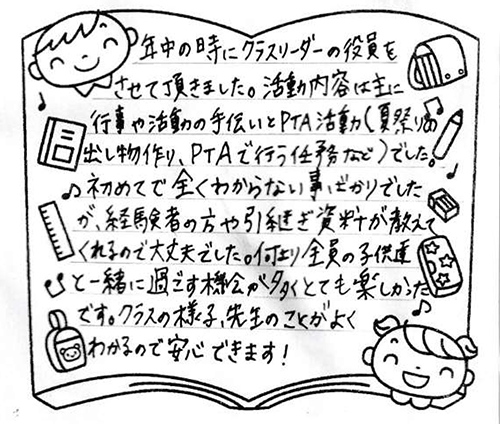 年中の時にクラスリーダーの役員を
させて頂きました。活動内容は主に
行事や活動の手伝いとPTA活動(夏祭りの
出し物作り、PTAで行う任務など)でした。
初めてで全くわからない事ばかりでした
が、経験者の方や引継ぎ資料が教えて
くれるので大丈夫でした。何より全員の子供達
と一緒に過ごす機会が多くとても楽しかった
です。クラスの様子、先生のことがよく
わかるので安心できます!